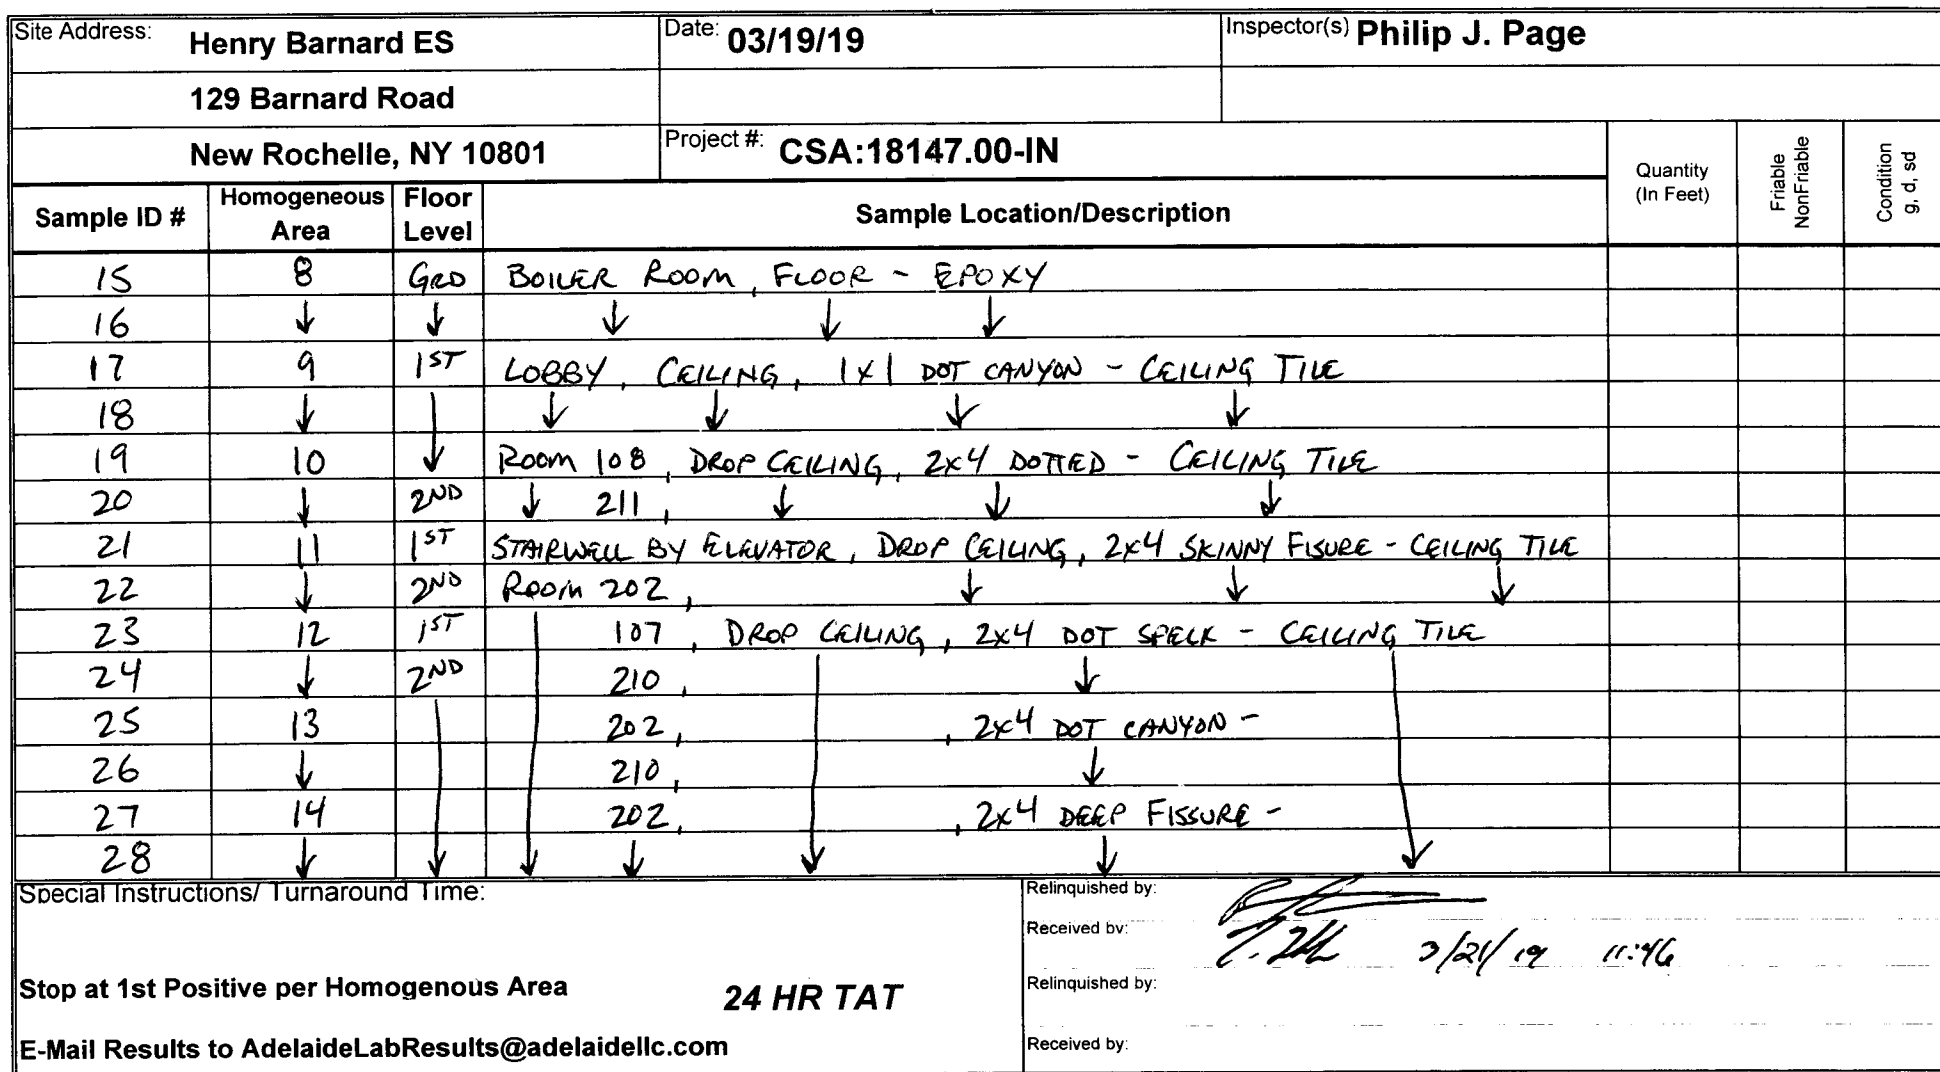 Site Address: Henry Barnard ES Date: 03/19/19 Inspector(s) Philip J. Page
129 Barnard Road
New Rochelle, NY 10801 Project #: CSA:18147.00-IN
Quantity (In Feet) Friable NonFriable Condition g, d, sd
Sample ID # Homogeneous Area Floor Level Sample Location/Description
15 8 GRD BOILER ROOM, FLOOR - EPOXY
16 ↓ ↓ ↓ ↓ ↓
17 9 1ST LOBBY, CEILING, 1x1 DOT CANYON - CEILING TILE
18 ↓ ↓ ↓ ↓ ↓
19 10 ↓ ROOM 108, DROP CEILING, 2x4 DOTTED - CEILING TILE
20 ↓ 2ND ↓ 211, ↓ ↓ ↓
21 11 1ST STAIRWELL BY ELEVATOR, DROP CEILING, 2x4 SKINNY FISURE - CEILING TILE
22 ↓ 2ND ROOM 202, ↓ ↓ ↓
23 12 1ST 107, DROP CEILING, 2x4 DOT SPECK - CEILING TILE
24 ↓ 2ND 210, ↓
25 13 202, , 2x4 DOT CANYON -
26 ↓ 210, ↓
27 14 202, , 2x4 DEEP FISSURE -
28 ↓ ↓ ↓ ↓ ↓ ↓ ↓
Special Instructions/ Turnaround Time:
Stop at 1st Positive per Homogenous Area 24 HR TAT
E-Mail Results to AdelaideLabResults@adelaidellc.com
Relinquished by:
Received by: 3/21/19 11:46
Relinquished by:
Received by: